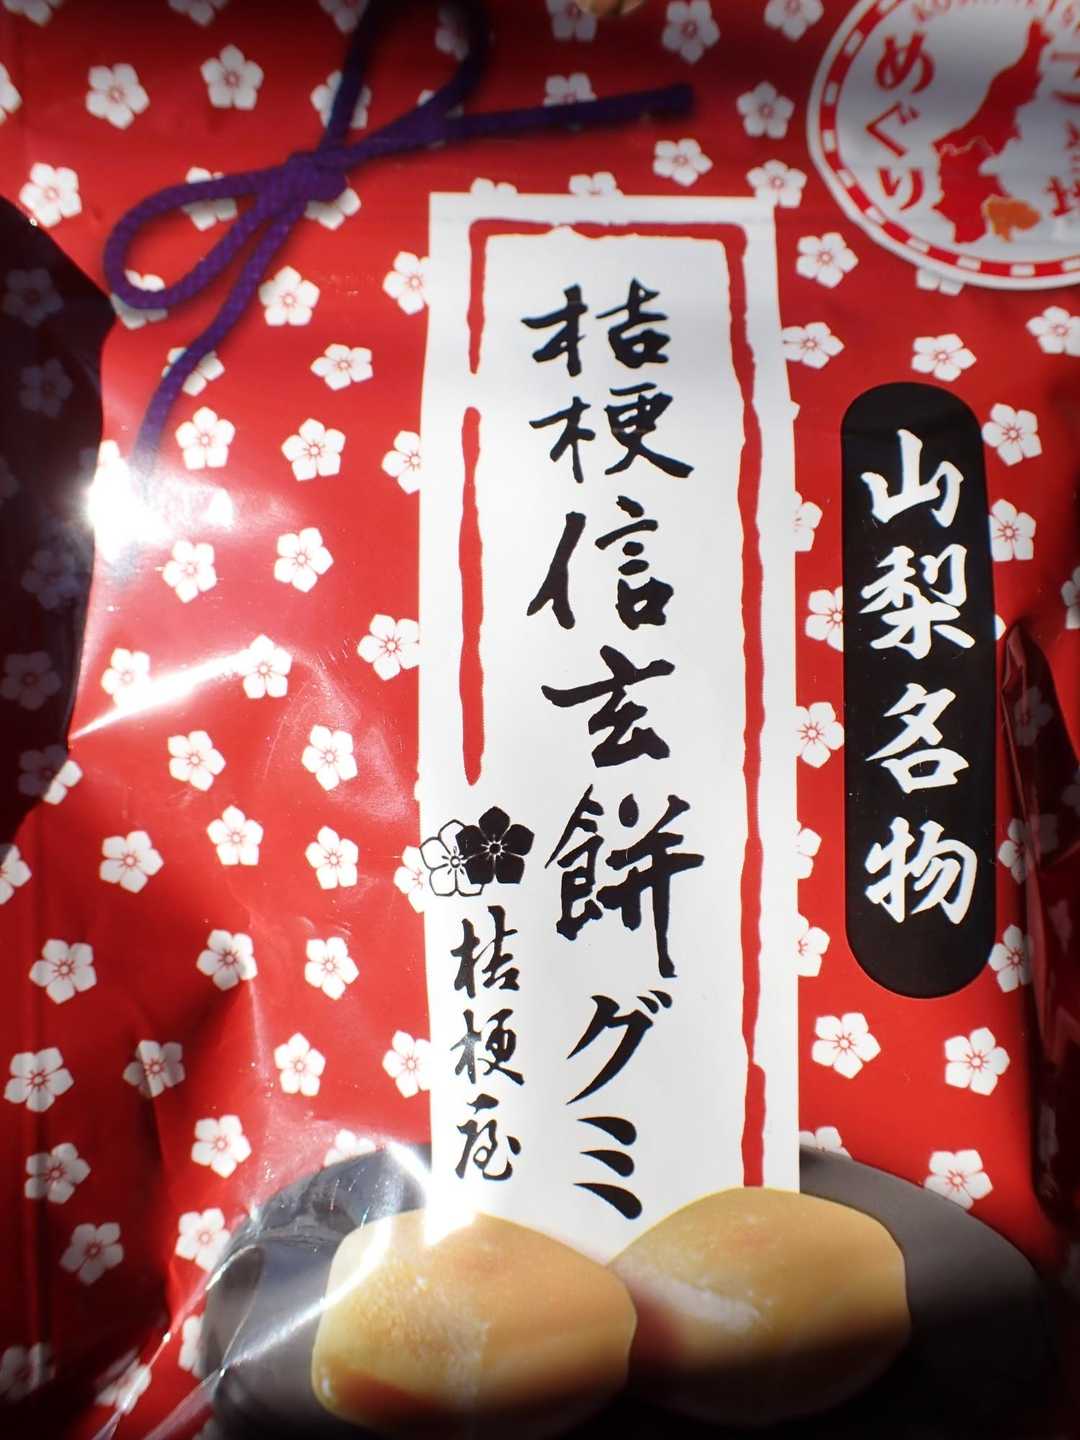 めぐり
山梨名物
桔梗信玄餅グミ
桔梗屋